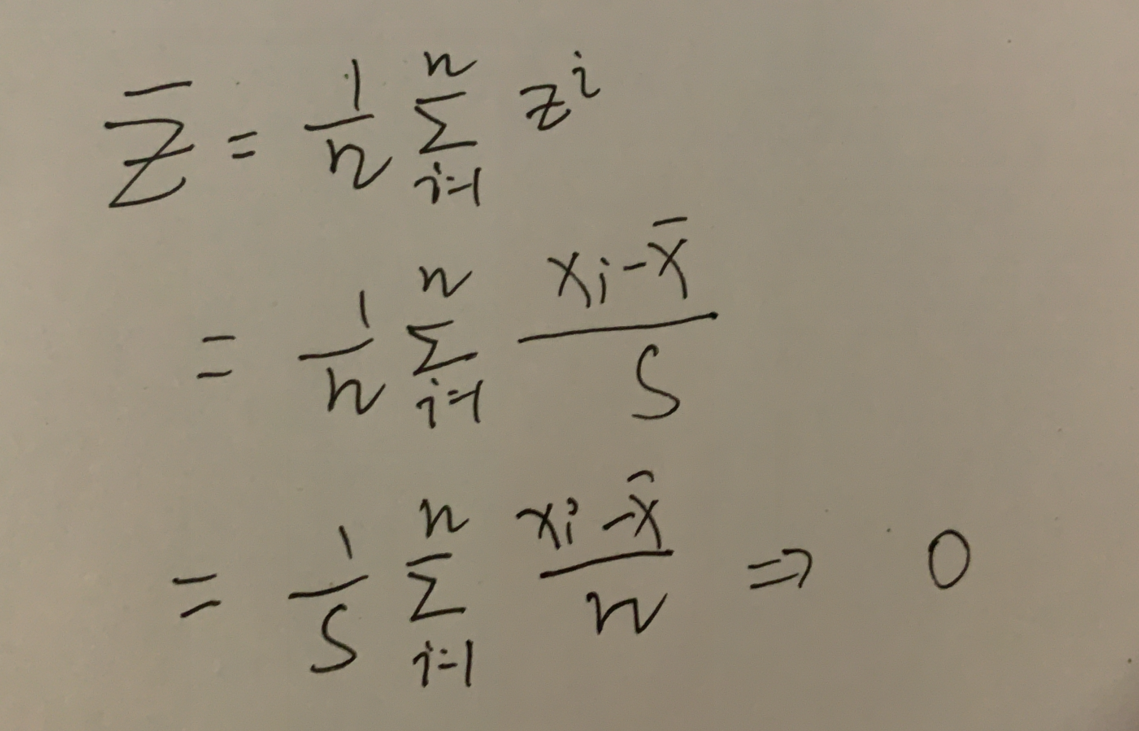 $\overline{Z} = \frac{1}{n} \sum_{i=1}^{n} z^i$
$= \frac{1}{n} \sum_{i=1}^{n} \frac{x_i - \bar{x}}{S}$
$= \frac{1}{S} \sum_{i=1}^{n} \frac{x_i - \bar{x}}{n} \Rightarrow 0$